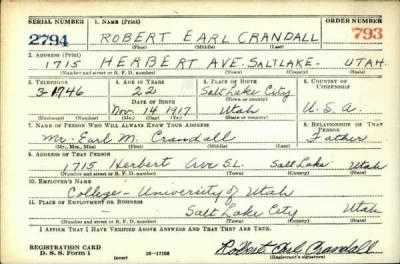 SERIAL NUMBER 1. NAME (Print) ORDER NUMBER
2794 ROBERT EARL CRANDALL 793
(First) (Middle) (Last)
2. ADDRESS (Print)
1715 HERBERT AVE. SALTLAKE- UTAH.
(Number and street or R. F. D. number) (Town) (County) (State)
3. TELEPHONE 4. AGE IN YEARS 5. PLACE OF BIRTH 6. COUNTRY OF CITIZENSHIP
3-1746 22 Salt Lake City
DATE OF BIRTH (Town or county)
Nov. 14 1917 Utah U.S.A.
(Exchange) (Number) (Mo.) (Day) (Yr.) (State or country)
7. NAME OF PERSON WHO WILL ALWAYS KNOW YOUR ADDRESS 8. RELATIONSHIP OF THAT PERSON
Mr. Earl M. Crandall Father
(Mr., Mrs., Miss) (First) (Middle) (Last)
9. ADDRESS OF THAT PERSON
1715 Herbert Ave S.L. Salt Lake Utah
(Number and street or R. F. D. number) (Town) (County) (State)
10. EMPLOYER'S NAME
College - University of Utah
11. PLACE OF EMPLOYMENT OR BUSINESS
- Salt Lake City Utah
(Number and street or R. F. D. number) (Town) (County) (State)
I AFFIRM THAT I HAVE VERIFIED ABOVE ANSWERS AND THAT THEY ARE TRUE.
REGISTRATION CARD
D. S. S. Form 1 (over) Robert Earl Crandall
(Registrant's signature)